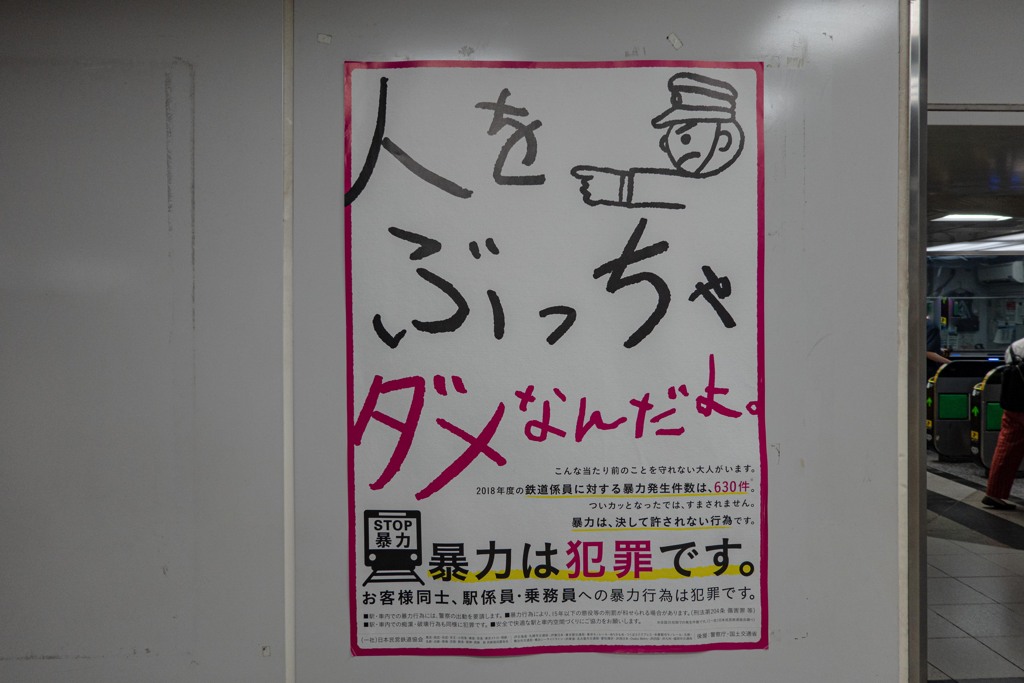 人を
ぶっちゃ
ダメなんだよ。
こんな当たり前のことを守れない大人がいます。
2018年度の鉄道係員に対する暴力発生件数は、630件。
ついカッとなったでは、すまされません。
暴力は、決して許されない行為です。
STOP
暴力
暴力は犯罪です。
お客様同士、駅係員・乗務員への暴力行為は犯罪です。
■駅・車内での暴力行為には、警察の出動を要請します。■暴力行為により、15年以下の懲役等の刑罰が科せられる場合があります。(刑法第204条 傷害罪 等)
■駅・車内での痴漢・破壊行為も同様に犯罪です。■安全で快適な駅と車内空間づくりにご協力をお願いします。
(一社)日本民営鉄道協会
後援:警察庁・国土交通省